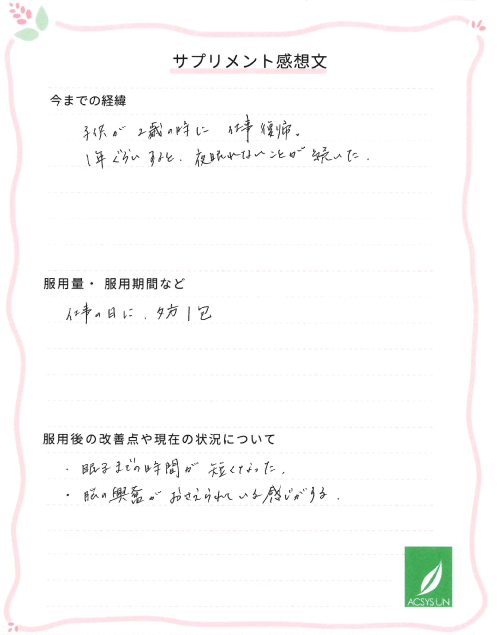 サプリメント感想文
今までの経緯
子供が2歳の時に 仕事復帰。
1年ぐらいすると、夜眠れないことが続いた。
服用量・服用期間など
仕事の日に、夕方1包
服用後の改善点や現在の状況について
・眠るまでの時間が短くなった。
・脳の興奮がおさえられている感じがする。
ACSYSUN